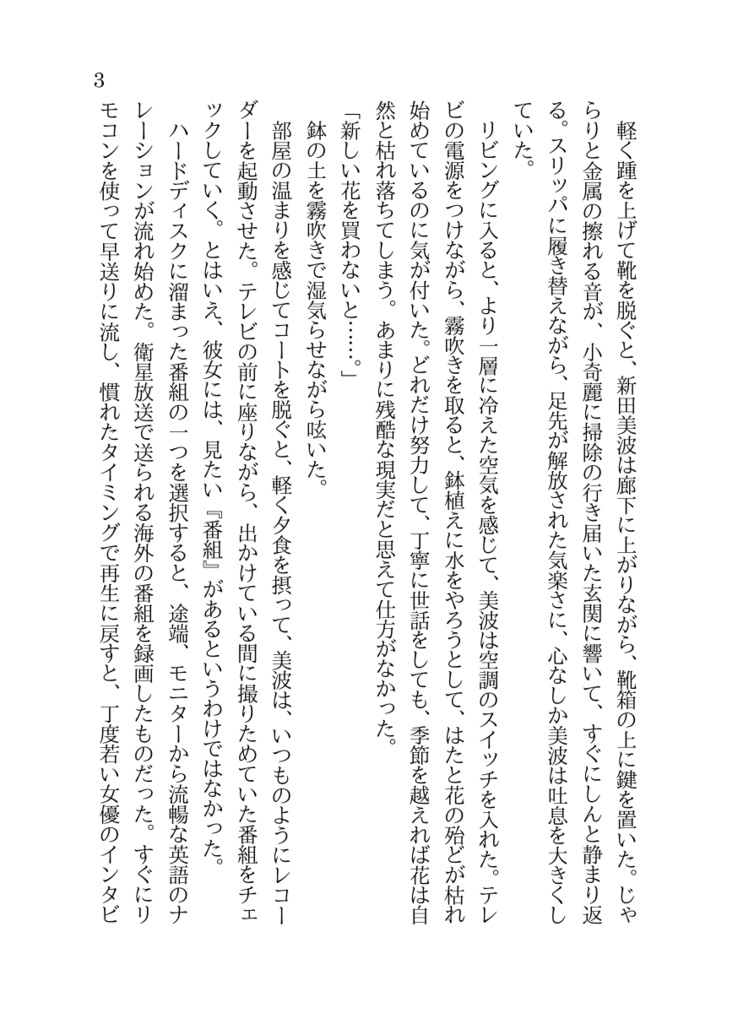 軽く踵を上げて靴を脱ぐと、新田美波は廊下に上がりながら、靴箱の上に鍵を置いた。じゃ
らりと金属の擦れる音が、小奇麗に掃除の行き届いた玄関に響いて、すぐにしんと静まり返
る。スリッパに履き替えながら、足先が解放された気楽さに、心なしか美波は吐息を大きくし
ていた。
リビングに入ると、より一層に冷えた空気を感じて、美波は空調のスイッチを入れた。テレ
ビの電源をつけながら、霧吹きを取ると、鉢植えに水をやろうとして、はたと花の殆どが枯れ
始めているのに気が付いた。どれだけ努力して、丁寧に世話をしても、季節を越えれば花は自
然と枯れ落ちてしまう。あまりに残酷な現実だと思えて仕方がなかった。
「新しい花を買わないと……。」
鉢の土を霧吹きで湿気らせながら呟いた。
部屋の温まりを感じてコートを脱ぐと、軽く夕食を摂って、美波は、いつものようにレコー
ダーを起動させた。テレビの前に座りながら、出かけている間に撮りためていた番組をチェ
ックしていく。とはいえ、彼女には、見たい『番組』があるというわけではなかった。
ハードディスクに溜まった番組の一つを選択すると、途端、モニターから流暢な英語のナ
レーションが流れ始めた。衛星放送で送られる海外の番組を録画したものだった。すぐにリ
モコンを使って早送りに流し、慣れたタイミングで再生に戻すと、丁度若い女優のインタビ
3